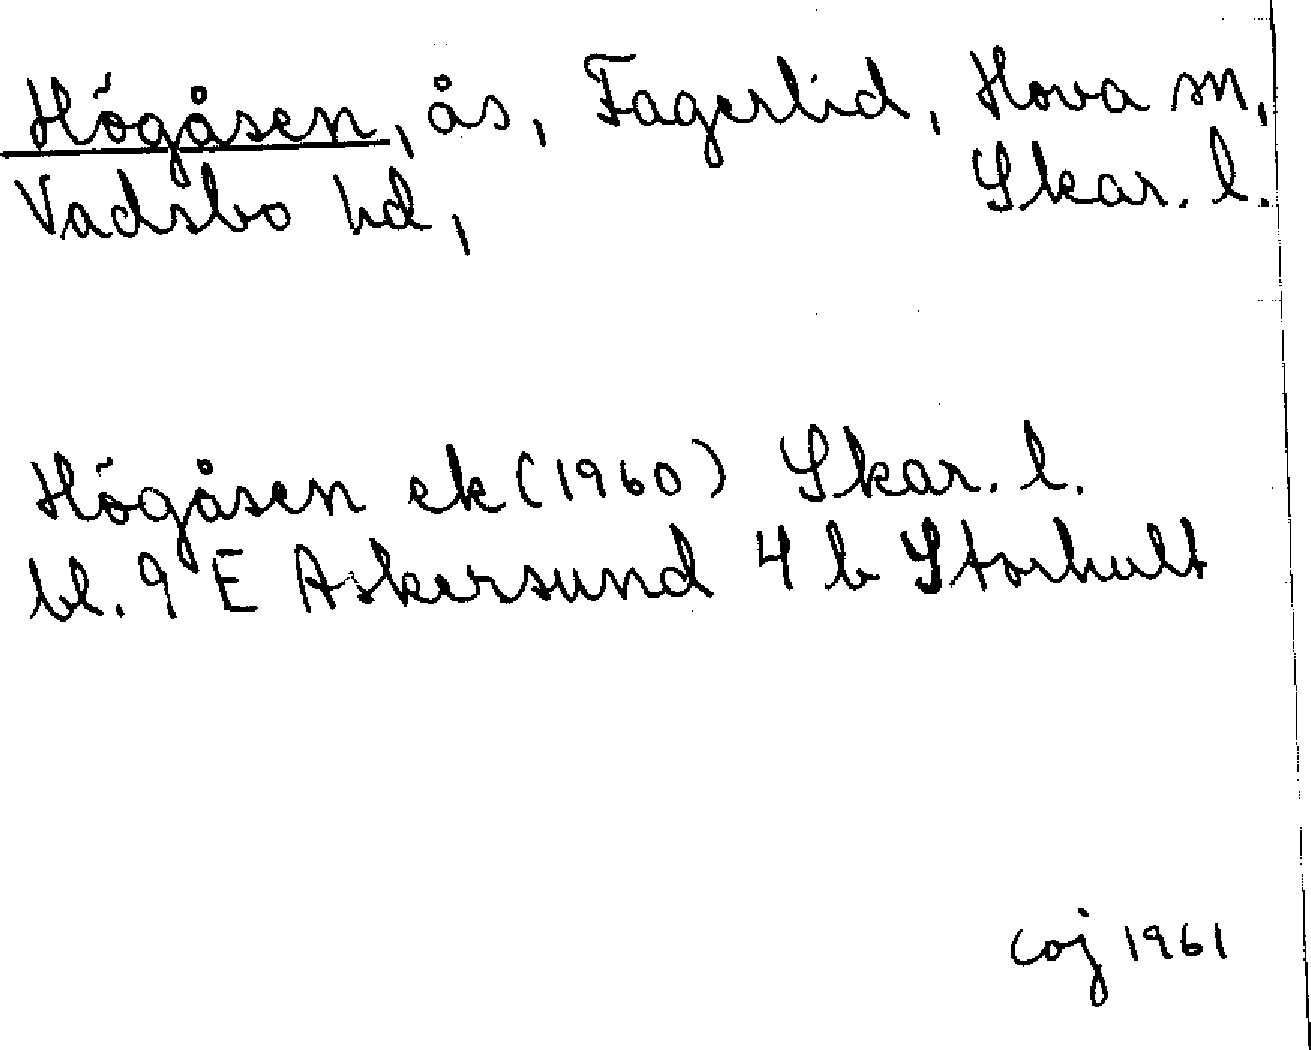 Högåsen, ås, Fagerlid, Hova sn,
Vadsbo hd, Skar. l.
Högåsen ek (1960) Skar. l.
bl. 9 E Askersund 4 b Storhult
coj 1961